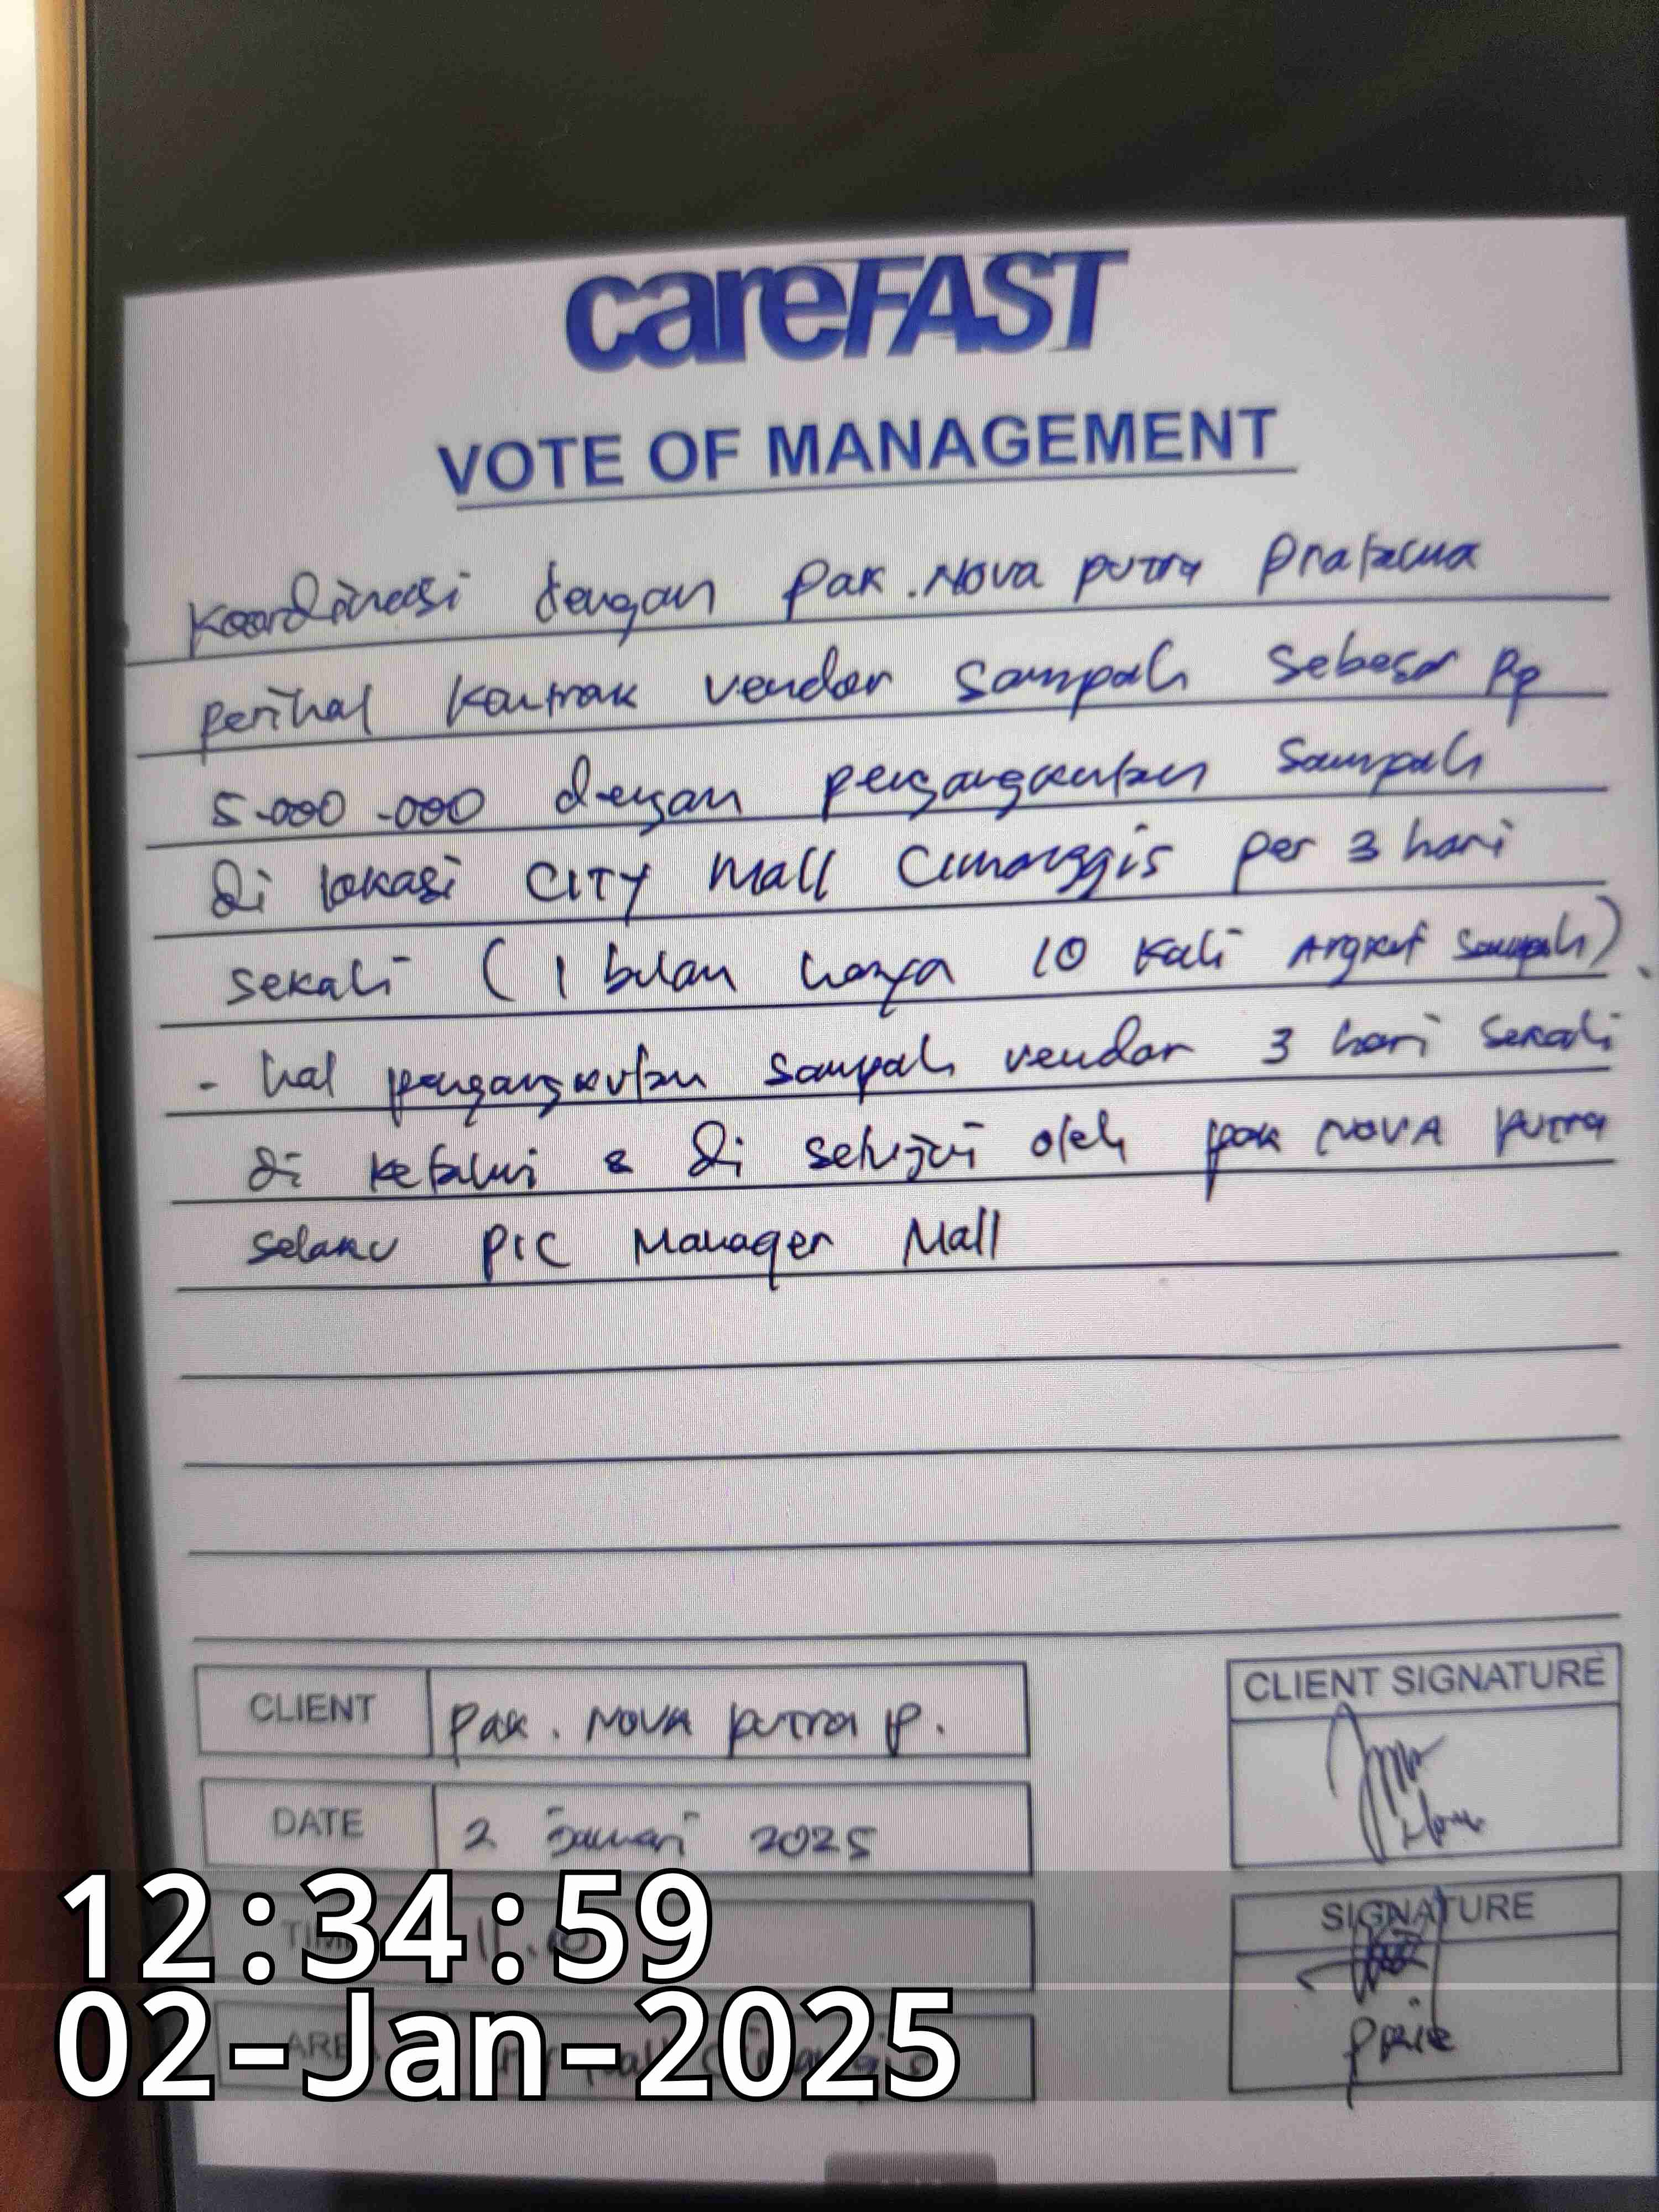 careFAST
VOTE OF MANAGEMENT
Koordinasi dengan Pak. Nova putra Pratama
perihal kontrak vendor Sampah Sebesar Rp
5.000.000 dengan pengangkutan Sampah
di lokasi CITY Mall Cimanggis per 3 hari
sekali ( 1 bulan hanya 10 kali Angkut Sampah)
- hal pengangkutan sampah vendor 3 hari sekali
di ketahui & di setujui oleh pak NOVA putra
selaku PIC Manager Mall
CLIENT Pak. NOVA putra P.
DATE 2 Januari 2025
CLIENT SIGNATURE
12:34:59
02-Jan-2025
SIGNATURE